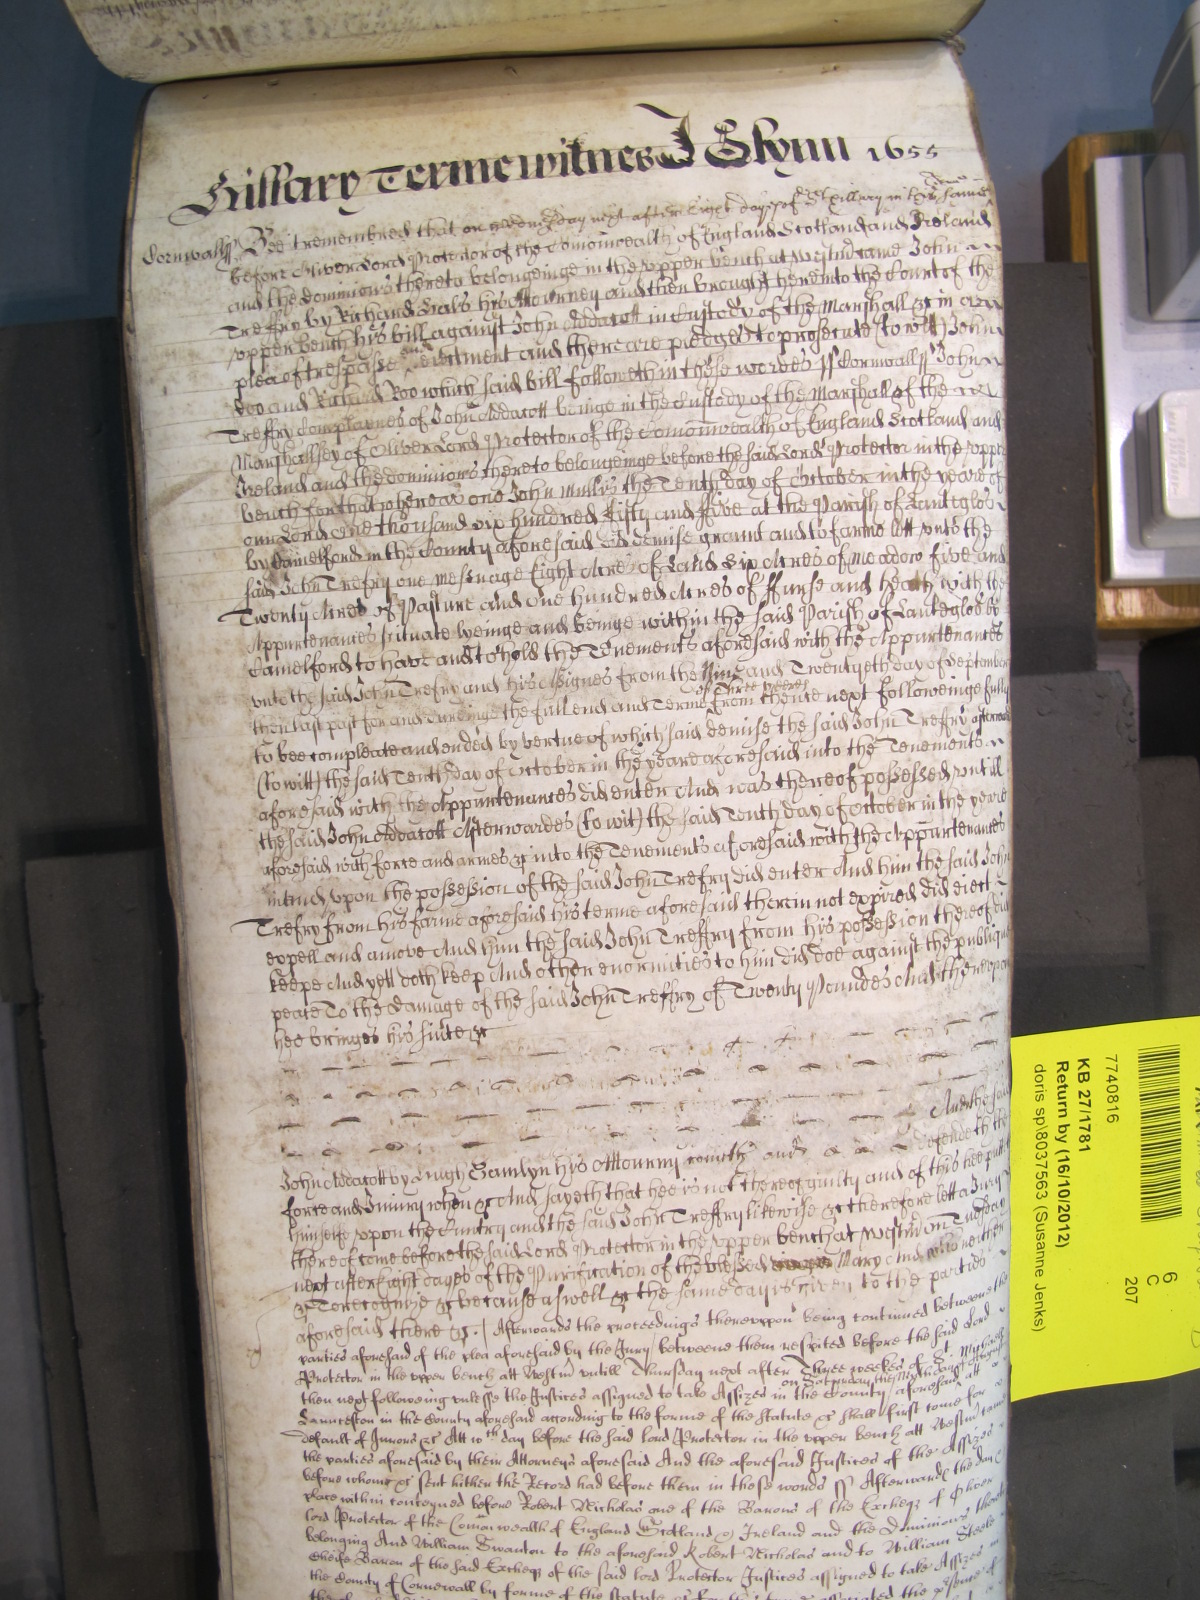 Hillary Terme witnes J Glynn 1655
Cornwall ss Bee it remembred that on wednesday next after Eight dayes of St Hillary in this same Terme
before Oliver Lord Protector of the Comonwealth of England Scotland and Ireland
and the dominions thereto belongeinge in the upper bench at Westm came John
Treffry by Richard Seals his Attourney and then brought here into the Court of the
upper bench his bill against John Addacott in Custody of the Marshall &c in a
plea of trespasse and eiectment and there are pledges to prosecute (to witt) John
Doo and Richard Roo which said bill followeth in these wordes ss Cornwall ss John
Treffry Complaynes of John Addacott beinge in the Custody of the Marshall of the
Marshallsey of Oliver Lord Protector of the Comonwealth of England Scotland and
Ireland and the dominions thereto belongeinge before the said Lord Protector in the upper
bench for that whereas one John Mullis the Tenth day of October in the yeare of
our Lord one thousand six hundred fifty and ffive at the Parish of Lanteglos
by Camelford in the County aforesaid did demise graunt and to farme lett unto the
said John Trefry one messuage Eight Acres of Land Six Acres of meadow five and
Twenty Acres of Pasture and one hundred Acres of ffurse and heath with the
Appurtenances scituate lyeinge and beinge within the said Parish of Lanteglos by
Camelford to have and to hold the Tenements aforesaid with the Appurtenances
unto the said John Trefry and his Assignes from the Nine and Twentyeth day of September
then last past for and dureinge the full end and Terme of three yeeres from thence next followeinge fully
to bee compleate and ended by vertue of which said demise the said John Treffry afterwards
(to witt) the said Tenth day of October in the yeare aforesaid into the Tenements
aforesaid with the Appurtenances did enter And was thereof possessed untill
the said John Addacott Afterwardes (to wit) the said Tenth day of October in the yeare
aforesaid with force and armes &c into the Tenements aforesaid with the Appurtenances
in and upon the possession of the said John Trefry did enter And him the said John
Trefry from his farme aforesaid his terme aforesaid therein not expired did eiect
expell and amove And him the said John Treffry from his possession thereof did
keepe And yett doth keep And other enormities to him did doe against the publique
peace To the damage of the said John Treffry of Twenty Poundes And thereupon
hee bringes his suite &c
And the said
John Addacott by Hugh Hamlyn his Attourny cometh and defendeth the
force and Iniury when &c And sayeth that hee is not thereof guilty and of this hee putts
himselfe upon the Cuntry and the said John Treffry likewise &c therefore lett a Jury
thereof come before the said Lord Protector in the upper bench at Westm on Tuesday
next after Eight dayes of the Purification of the blessed Mary And who neither
&c To recognize &c because aswell &c the same day is given to the parties
aforesaid there &c / Afterwards the proceedings thereuppon being continued betweene the
parties aforesaid of the plea aforesaid by the Jury betweene them respited before the said Lord
Protector in the upper bench att Westm untill Thursday next after Three weekes of St Michaell
then next following unlesse the Justices assigned to take Assizes in the County aforesaid on Saturday the day of August att
Launceston in the County aforesaid according to the forme of the Statute &c shall first come for
default of Jurors &c Att wch day before the said lord Protector in the upper bench att Westm came
the parties aforesaid by their Attorneys aforesaid And the aforesaid Justices of the Assizes
before whome &c sent hither the Record had before them in these words ss Afterwards the day &
place within conteyned before Robert Nicholas one of the Barons of the Excheqr of Oliver
lord Protector of the Comonwealth of England Scotland & Ireland and the Dominions thereto
belonging And William Swanton to the aforesaid Robert Nicholas and to William Steele
Cheife Baron of the said Excheqr of the said lord Protector Justices assigned to take Assizes in
the County of Cornewall by forme of the statute &c associated the presence of
7740816
KB 27/1781
Return by (16/10/2012)
doris sp\8037563 (Susanne Jenks)
6
C
207